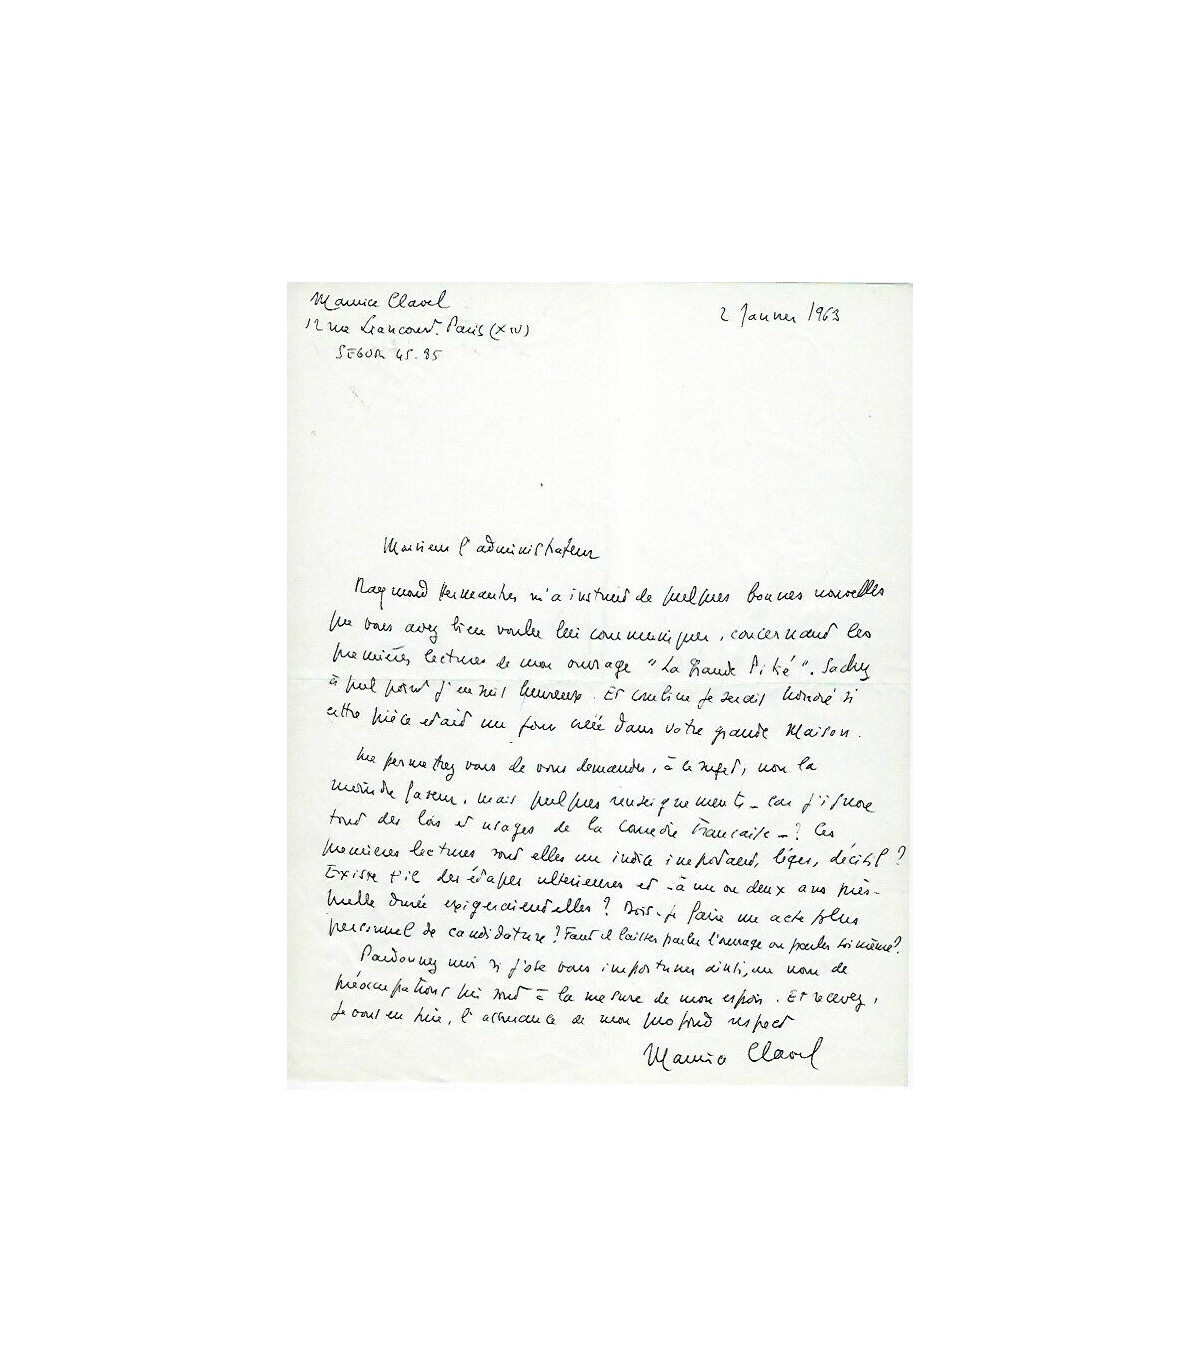 Maurice Clavel
12 rue Liancourt. Paris (XIV)
SEGUR 45.85
2 Janvier 1963
Monsieur l'administrateur
Raymond Hermantier m'a instruit de quelques bonnes nouvelles
que vous avez bien voulu lui communiquer, concernant les
premières lectures de mon ouvrage "La Grande Pitié". Sachez
à quel point j'en suis heureux. Et combien je serais honoré si
cette pièce était un jour créée dans votre grande Maison.
Me permettrez vous de vous demander, à ce sujet, non la
moindre faveur, mais quelques renseignements - car j'ignore
tout des lois et usages de la Comédie Française - ? Ces
premières lectures sont elles un indice important, léger, décisif ?
Existe t'il des étapes ultérieures et - à un ou deux ans près -
quelle durée exigeraient elles ? Dois-je faire un acte plus
personnel de candidature ? Faut il laisser parler l'ouvrage ou parler soi même ?
Pardonnez moi si j'ose vous importuner ainsi, au nom de
préoccupations qui sont à la mesure de mon espoir. Et recevez,
je vous en prie, l'assurance de mon profond respect
Maurice Clavel